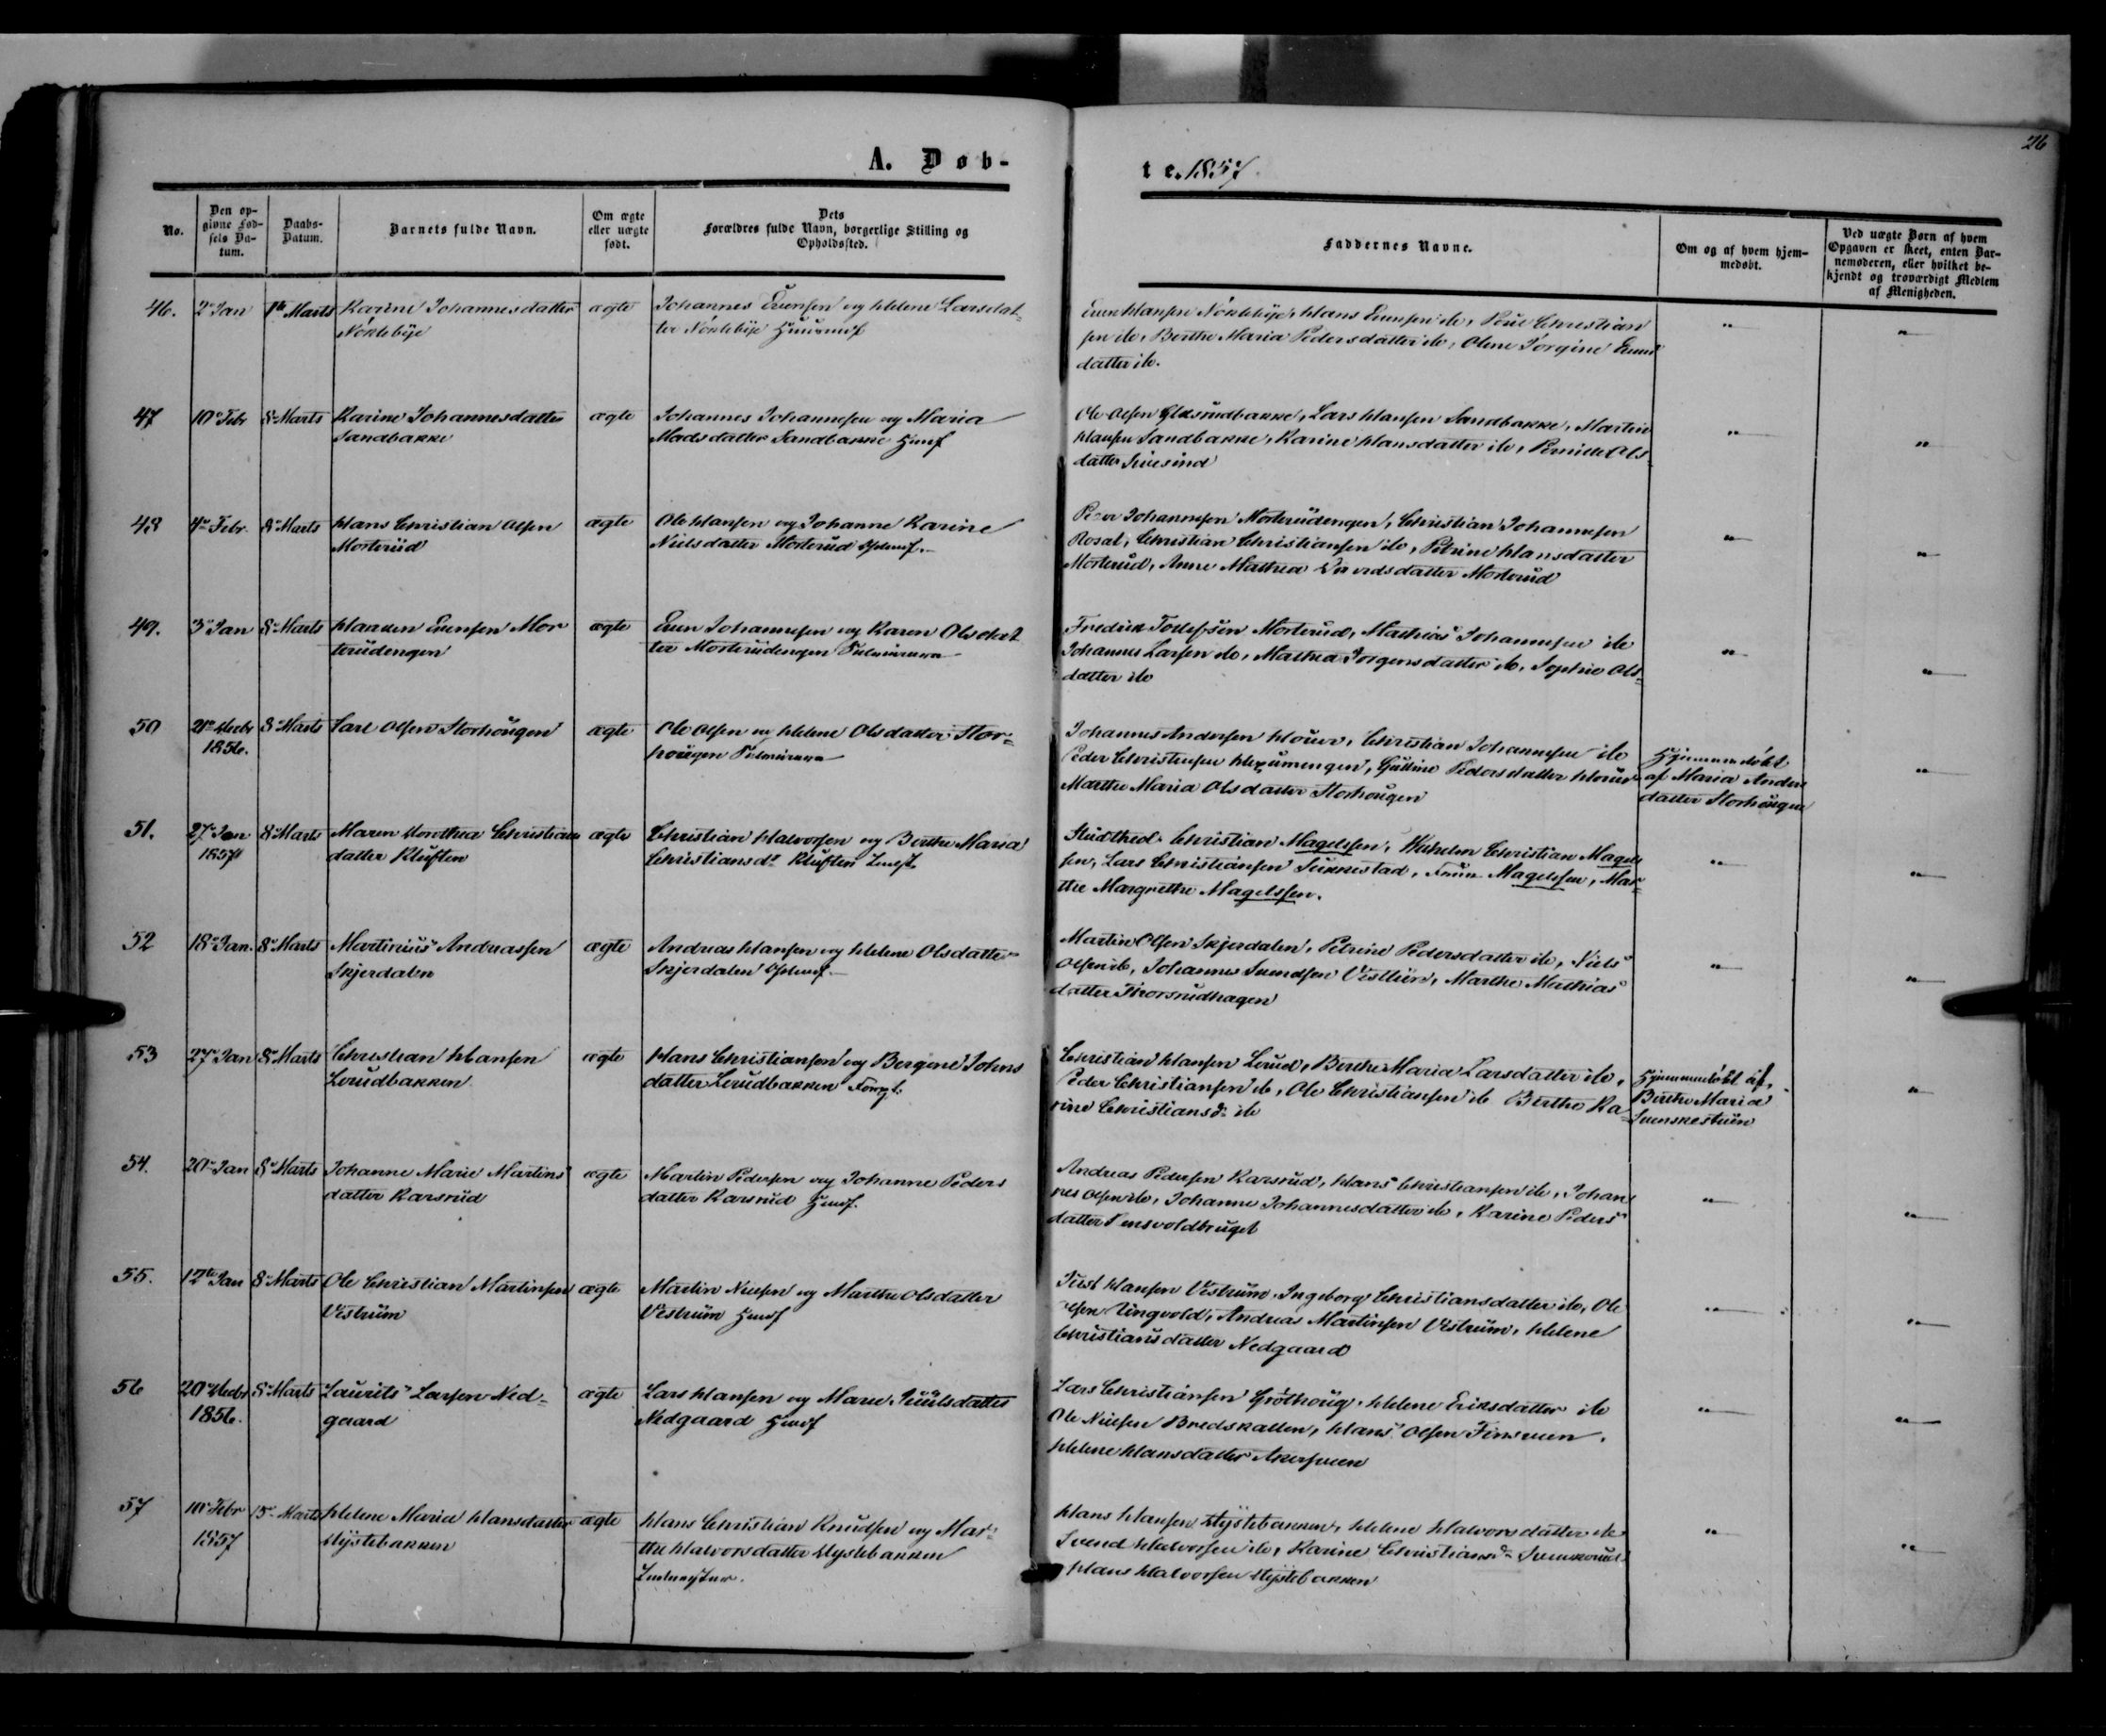 26
A. Døb-
te. 1857.
No.
Den op-
givne Fød-
sels Da-
tum.
Daabs-
Datum.
Barnets fulde Navn.
Om ægte
eller uægte
født.
Dets
Forældres fulde Navn, borgerlige Stilling og
Opholdssted.
Faddernes Navne.
Om og af hvem hjem-
medøbt.
Ved uægte Børn af hvem
Opgaven er skeet, enten Bar-
nemoderen, eller hvilket be-
kjendt og troværdigt Medlem
af Menigheden.
46. 2 Jan 1 Marts Karine Johannesdatter ægte Johannes Evensen og Helene Larsdat-
Nøklebÿe ter Nøklebÿe Huusmd
Even Hansen Nøklebÿe, Hans Evensen do, Poul Christian
sen do, Berthe Maria Pedersdatter do, Olene Jørgine Evens
datter do.
47 10 Febr 8 Marts Karine Johannesdatter ægte Johannes Johannesen og Maria
Sandbakke Madsdatter Sandbakke
Ole Olsen bakke, Lars Hansen Sandbakke, Martin
Hansen Sandbakke, Karine Hansdatter do, Pernille Ols
datter
48 4 Febr. 8 Marts Hans Christian Olsen ægte Ole Hansen og Johanne Karine
Morterud Nielsdatter Morterud
Johannesen Morterudengen, Christian Johannesen
Rosal, Christian Christiansen do, Petrine Hansdatter
Morterud, Anne Mathea datter Morterud
49. 3 Jan 8 Marts Haaken Evensen Mor ægte Even Johannesen og Karen Olsdat
terudengen ter Morterudengen
Fredrik Tollefsen Morterud, Mathias Johannesen do
Johannes Larsen do, Mathea Jørgensdatter do, Sophie Ols-
datter do
50 21 Decbr 8 Marts Carl Olsen Storhougen ægte Ole Olsen og Helene Olsdatter Stor-
1856. hougen
Johannes Andersen , Christian Johannesen do
Peder Christensen , Gulline Pedersdatter
Marthe Maria Olsdatter Storhougen
Hjemmedøbt
af Maria Anders
datter Storhougen
51. 27 Jan 8 Marts Maren Dorothea Christians ægte Christian Halvorsen og Berthe Maria
1857 datter Kluften Christiansdr Kluften
Christian Magelssen, Wilhelm Christian Magels
sen, Lars Christiansen Sukkestad, Magelssen, Mar-
the Margrethe Magelssen.
52 18 Jan. 8 Marts Martinius Andreassen ægte Andreas Hansen og Helene Olsdatter
Skjerdalen Skjerdalen
Martin Olsen Skjerdalen, Petrine Pedersdatter do, Niels
Olsen do, Johannes , Marthe Mathias
datter Thorsrudhagen
53 27 Jan 8 Marts Christian Hansen ægte Hans Christiansen og Bergine Johns
Lerudbakken datter Lerudbakken
Christian Hansen Lerud, Berthe Maria Larsdatter do,
Peder Christiansen do, Ole Christiansen do Berthe Ka-
rine Christiansdr do
Hjemmedøbt af
Berthe Maria
54. 20 Jan 8 Marts Johanne Marie Martins ægte Martin Pedersen og Johanne Peders
datter Karsrud datter Karsrud
Andreas Pedersen Karsrud, Hans Christiansen do, Johan
nes Olsen do, Johanne Johannesdatter do, Karine Peders
datter
55. 12te Jan 8 Marts Ole Christian Martinsen ægte Martin Nielsen og Marthe Olsdatter
Vestrum Vestrum
Hansen Vestrum, Ingeborg Christiansdatter do, Ole
Olsen Tingvold, Andreas Martinsen Vestrum, Helene
Christiansdatter Nedgaard
56 20 Decbr 8 Marts Laurits Larsen Ned- ægte Lars Hansen og Marie datter
1856. gaard Nedgaard
Lars Christiansen Grøthoug, Helene Eriksdatter do
Ole Nielsen Bredskallen, Hans Olsen
Helene Hansdatter
57 10 Febr 15 Marts Helene Maria Hansdatter ægte Hans Christian Knudsen og Mar-
1857 Dÿstebakken the Halvorsdatter Dÿstebakken
Hans Hansen Dÿstebakken, Helene Halvorsdatter do
Svend Halvorsen do, Karine Christiansdr
Hans Halvorsen Dÿstebakken